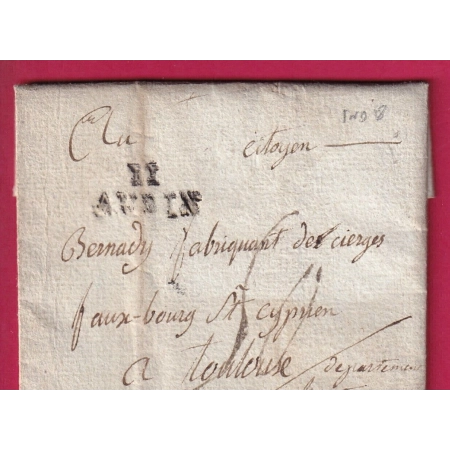 IND 8
Au citoyen
11
AUBIN
Bernady fabriquant de cierges
faux-bourg St Cyprien
a Toulouse departement